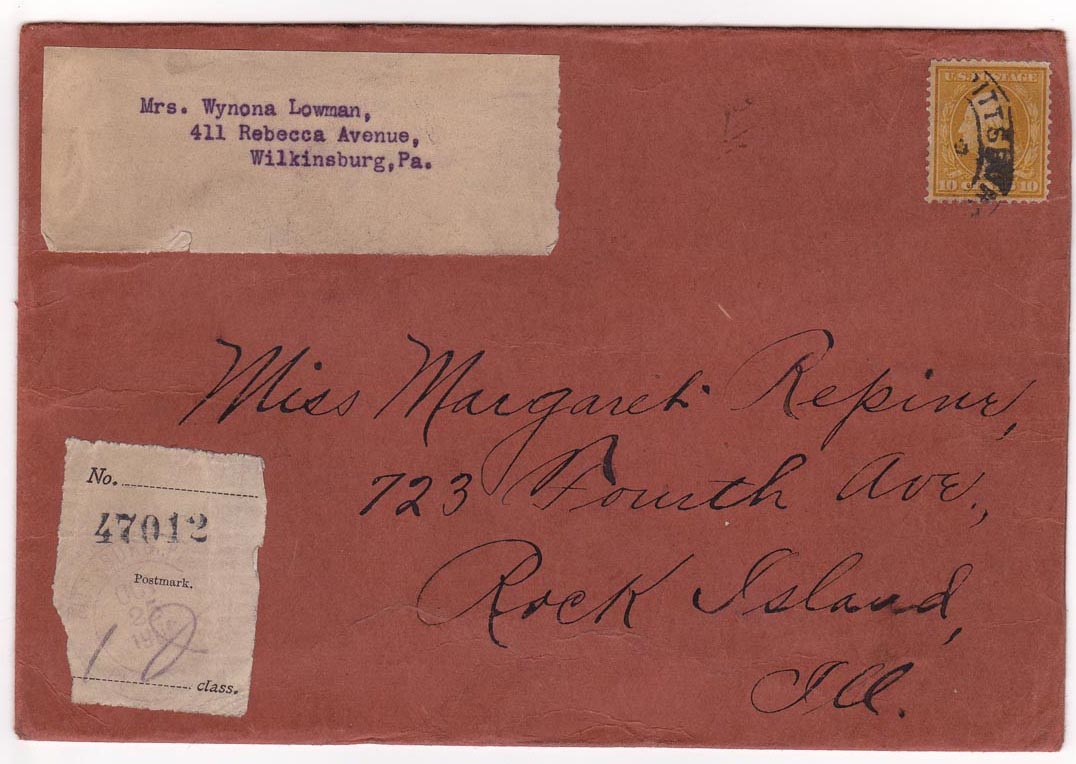 Mrs. Wynona Lowman,
411 Rebecca Avenue,
Wilkinsburg, Pa.
U.S. POSTAGE
10 10
Miss Margaret Repine,
723 Fourth Ave.,
Rock Island,
Ill.
No.
47012
Postmark.
class.